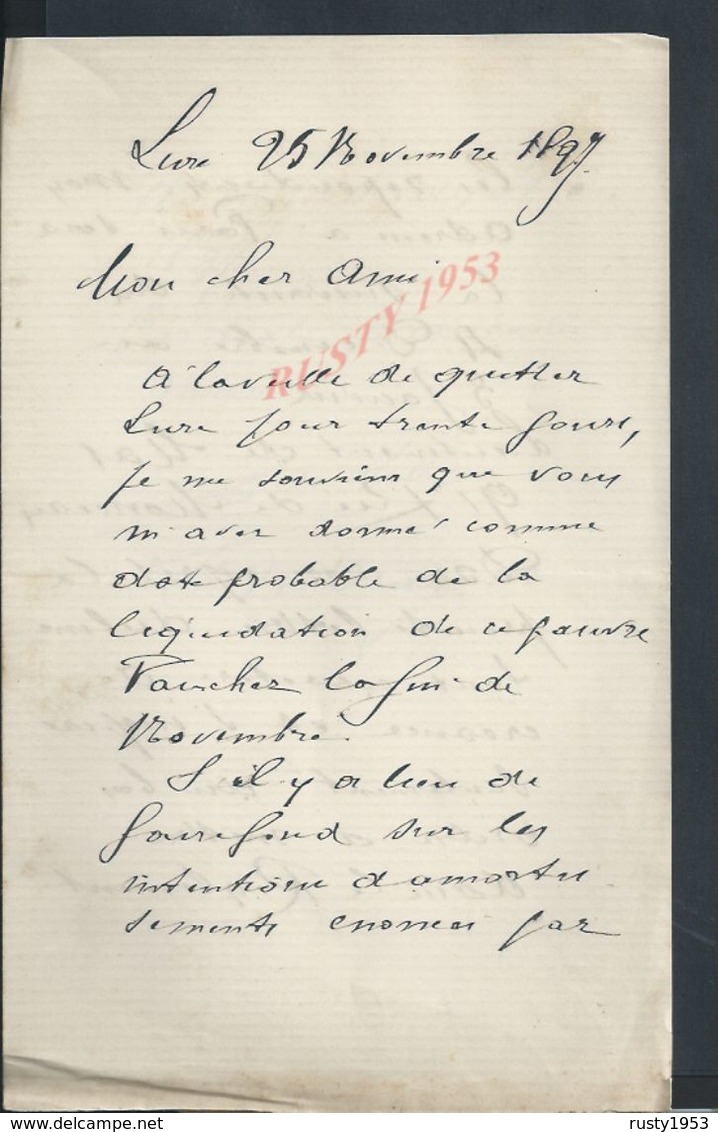 Lure 25 Novembre 1897
Mon cher Ami
RUSTY 1953
A la veille de quitter
Lure pour trente jours,
je me souviens que vous
m'avez donné comme
date probable de la
liquidation de ce pauvre
Faucher la fin de
Novembre.
S'il y a lieu de
faire fond sur les
intentions d'amortis
sements énoncées par
delcampe.net
rusty1953